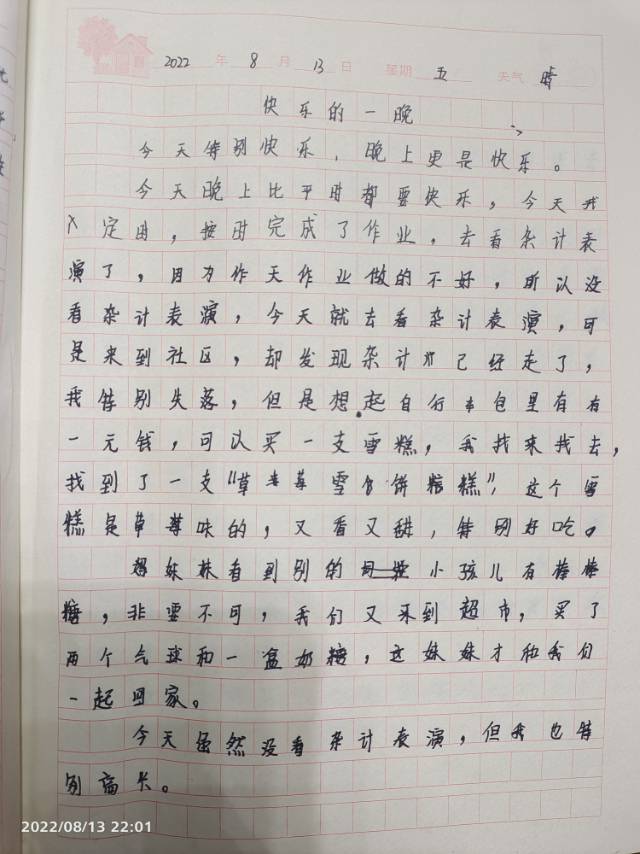 2022年8月13日 星期五 天气晴
快乐的一晚
今天特别快乐,晚上更是快乐。
今天晚上比平时都要快乐,今天我
定由,按时完成了作业,去看杂计表
演了,因为作天作业做的不好,所以没
看杂计表演,今天就去看杂计表演,可
是来到社区,却发现杂计己经走了,
我特别失落,但是想起自行包里有有
一元钱,可以买一支雪糕,我找来找去,
找到了一支“草莓雪饼糕”,这个雪
糕是草莓味的,又香又甜,特别好吃。
妹妹看到别的小孩儿有棒棒
糖,非要不可,我们又来到超市,买了
两个气球和一盒奶糖,这妹妹才和我们
一起回家。
今天虽然没看杂计表演,但我也特
别高兴。
2022/08/13 22:01